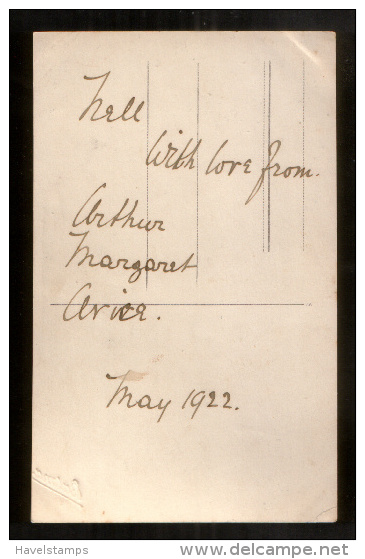 Nell
With love from.
Arthur
Margaret
Avice.
May 1922.
Havelstamps
delcampe.net